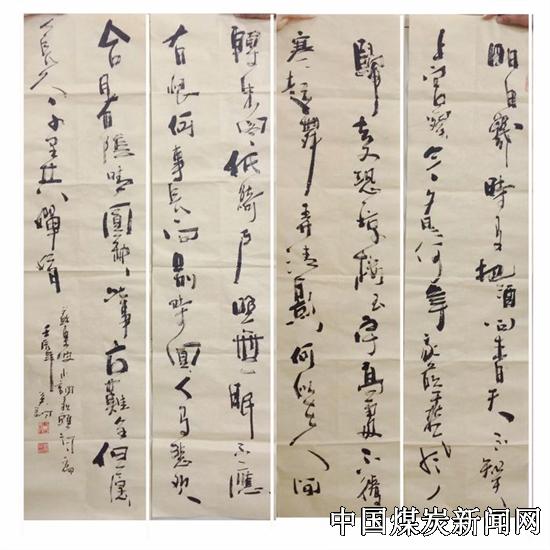 明月幾時有把酒问青天不知天
上宫阙今夕是何年我欲乘风
歸去又恐琼楼玉宇高處不勝
寒起舞弄清影何似在人间
轉朱阁低绮户照無眠不應
有恨何事长向别時圆人有悲欢
合月有陰晴圆缺此事古難全但愿
人長久千里共嬋娟
中国煤炭新闻网